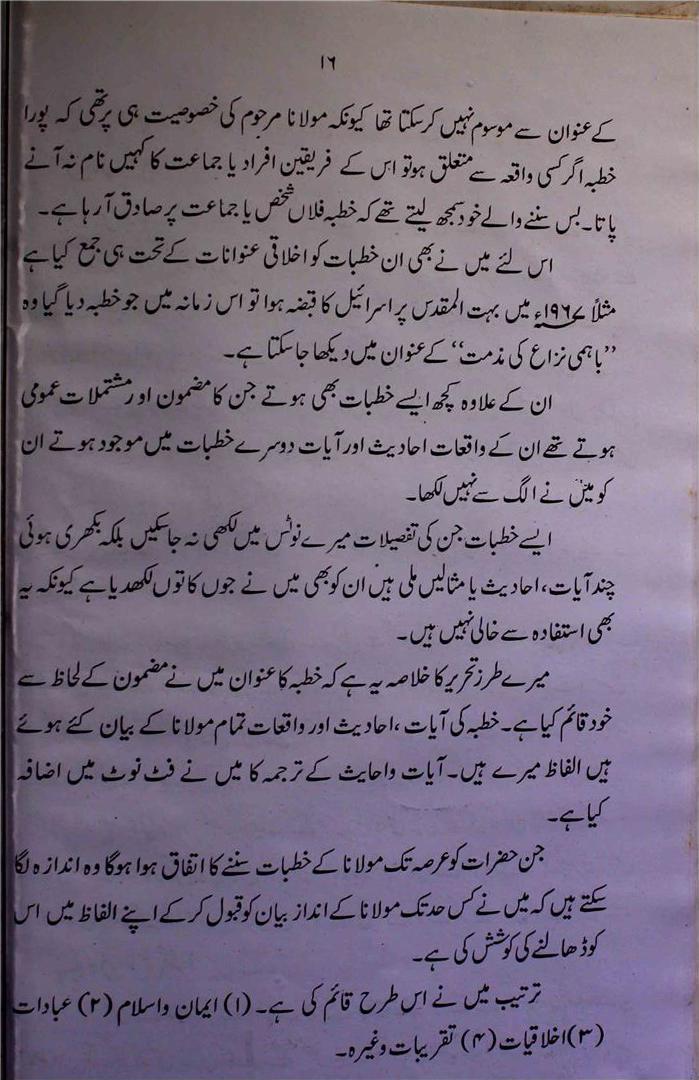 ۱۶
کے عنوان سے موسوم نہیں کرسکتا تھا کیونکہ مولانا مرحوم کی خصوصیت ہی پر تھی کہ پورا
خطبہ اگر کسی واقعہ سے متعلق ہو تو اس کے فریقین افراد یا جماعت کا کہیں نام نہ آنے
پاتا۔ بس سننے والے خود سمجھ لیتے تھے کہ خطبہ فلاں شخص یا جماعت پر صادق آرہا ہے۔
اس لئے میں نے بھی ان خطبات کو اخلاقی عنوانات کے تحت ہی جمع کیا ہے
مثلاً ۱۹۶۷ء میں بہت المقدس پر اسرائیل کا قبضہ ہوا تو اس زمانہ میں جو خطبہ دیا گیا وہ
”باہمی نزاع کی مذمت“ کے عنوان میں دیکھا جاسکتا ہے۔
ان کے علاوہ کچھ ایسے خطبات بھی ہوتے جن کا مضمون اور مشتملات عمومی
ہوتے تھے ان کے واقعات احادیث اور آیات دوسرے خطبات میں موجود ہوتے ان
کو میں نے الگ سے نہیں لکھا۔
ایسے خطبات جن کی تفصیلات میرے نوٹس میں لکھی نہ جاسکیں بلکہ بکھری ہوئی
چند آیات، احادیث یا مثالیں ملی ہیں ان کو بھی میں نے جوں کا توں لکھدیا ہے کیونکہ یہ
بھی استفادہ سے خالی نہیں ہیں۔
میرے طرز تحریر کا خلاصہ یہ ہے کہ خطبہ کا عنوان میں نے مضمون کے لحاظ سے
خود قائم کیا ہے۔ خطبہ کی آیات، احادیث اور واقعات تمام مولانا کے بیان کئے ہوئے
ہیں الفاظ میرے ہیں۔ آیات واحایث کے ترجمہ کا میں نے فٹ نوٹ میں اضافہ
کیا ہے۔
جن حضرات کو عرصہ تک مولانا کے خطبات سننے کا اتفاق ہوا ہوگا وہ اندازہ لگا
سکتے ہیں کہ میں نے کس حد تک مولانا کے انداز بیان کو قبول کرکے اپنے الفاظ میں اس
کو ڈھالنے کی کوشش کی ہے۔
ترتیب میں نے اس طرح قائم کی ہے۔ (۱) ایمان واسلام (۲) عبادات
(۳) اخلاقیات (۴) تقریبات وغیرہ۔